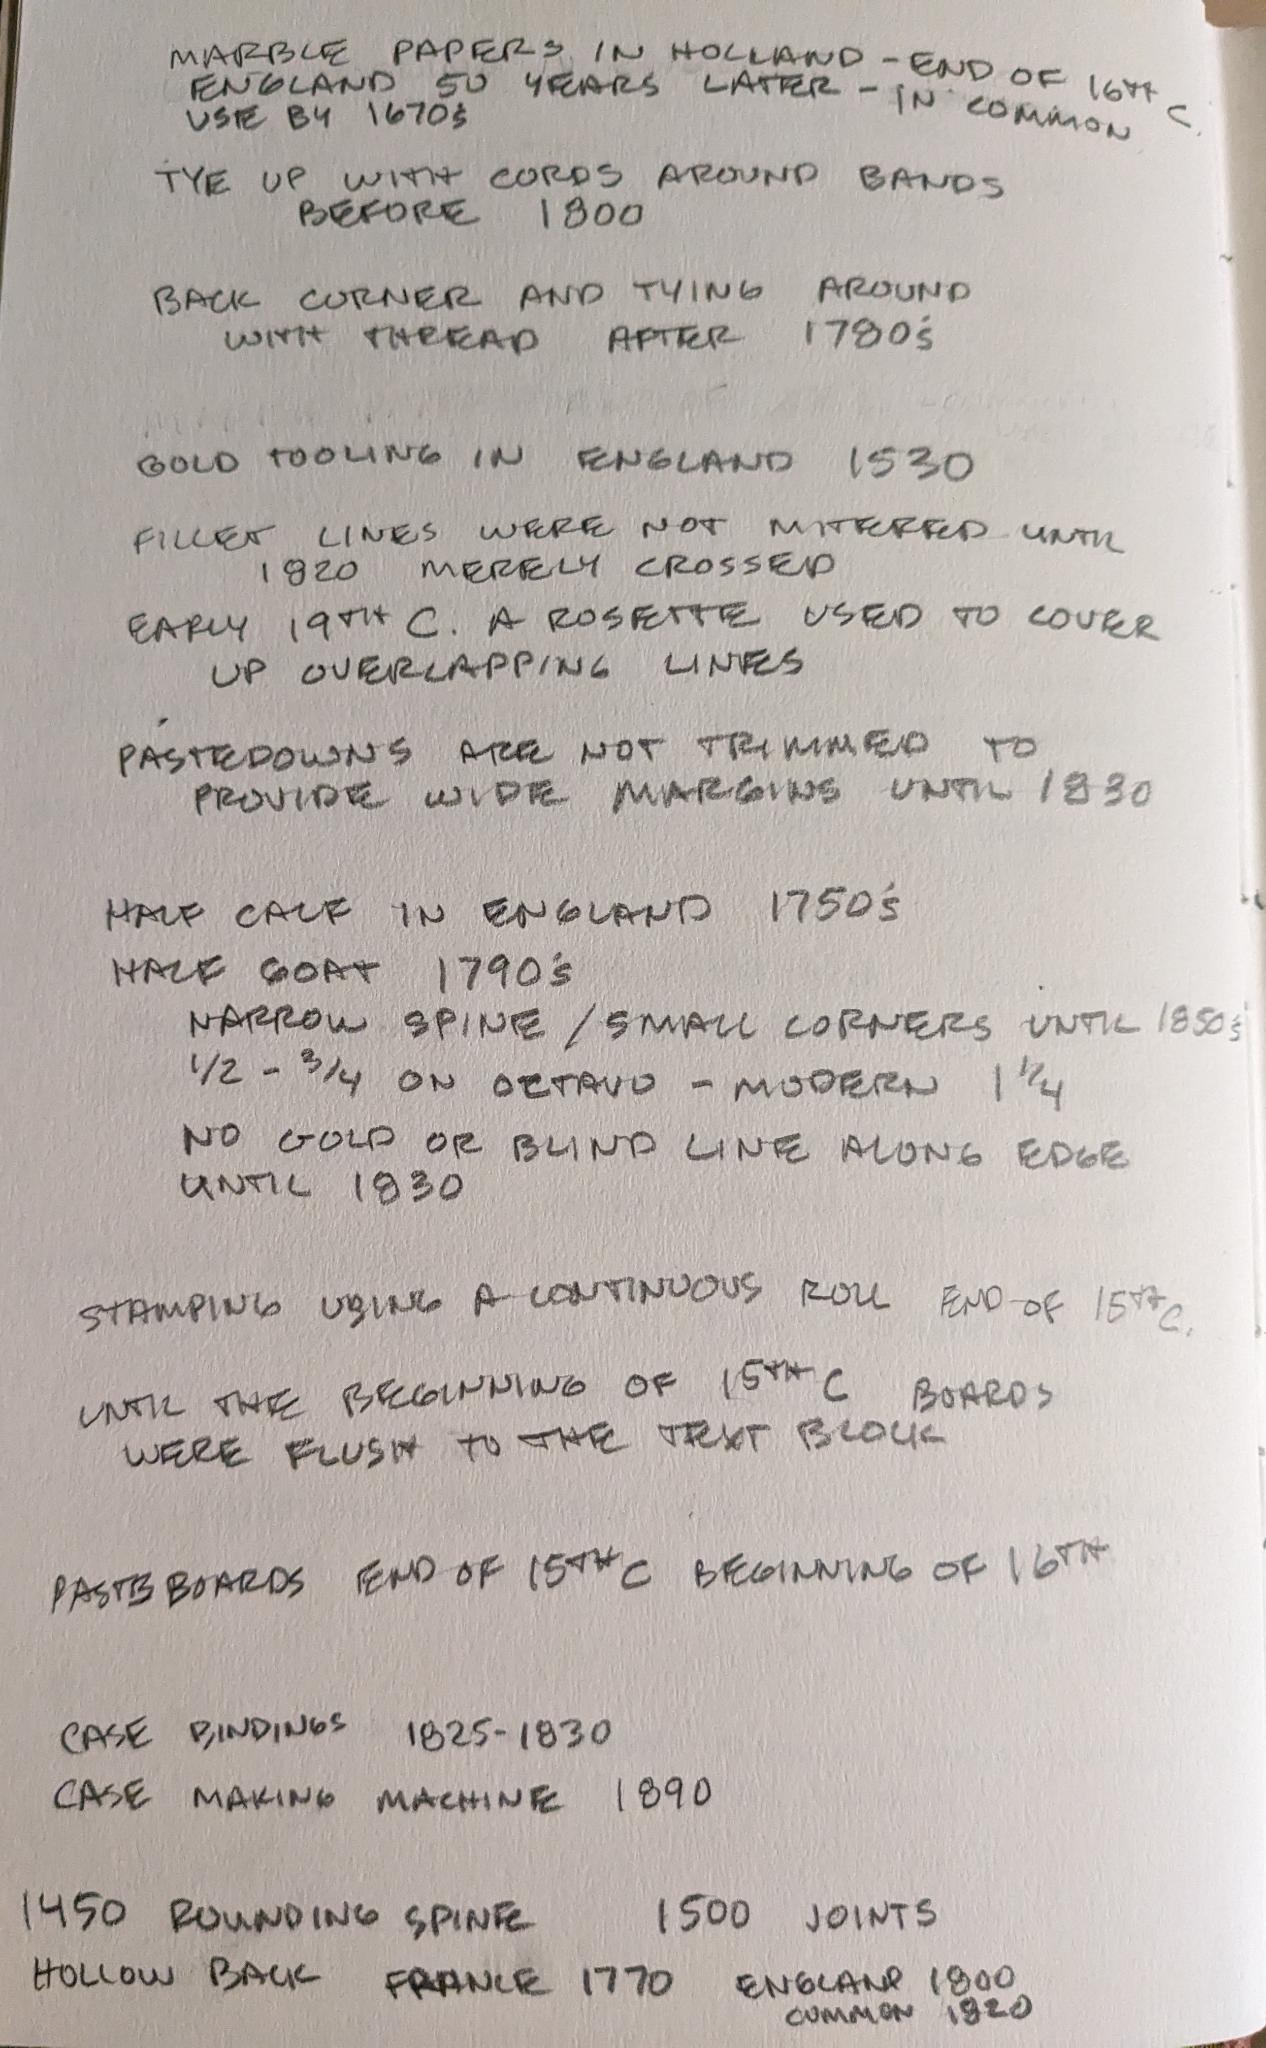 MARBLE PAPERS IN HOLLAND - END OF 16TH C.
ENGLAND 50 YEARS LATER - IN COMMON
USE BY 1670's
TYE UP WITH CORDS AROUND BANDS
BEFORE 1800
BACK CORNER AND TYING AROUND
WITH THREAD AFTER 1780's
GOLD TOOLING IN ENGLAND 1530
FILLET LINES WERE NOT MITERED UNTIL
1820 MERELY CROSSED
EARLY 19TH C. A ROSETTE USED TO COVER
UP OVERLAPPING LINES
PASTEDOWNS ARE NOT TRIMMED TO
PROVIDE WIDE MARGINS UNTIL 1830
HALF CALF IN ENGLAND 1750's
HALF GOAT 1790's
NARROW SPINE / SMALL CORNERS UNTIL 1850's
1/2 - 3/4 ON OCTAVO - MODERN 1 1/4
NO GOLD OR BLIND LINE ALONG EDGE
UNTIL 1830
STAMPING USING A CONTINUOUS ROLL END OF 15TH C.
UNTIL THE BEGINNING OF 15TH C BOARDS
WERE FLUSH TO THE TEXT BLOCK
PASTEBOARDS END OF 15TH C BEGINNING OF 16TH
CASE BINDINGS 1825-1830
CASE MAKING MACHINE 1890
1450 ROUNDING SPINE 1500 JOINTS
HOLLOW BACK FRANCE 1770 ENGLAND 1800
COMMON 1820